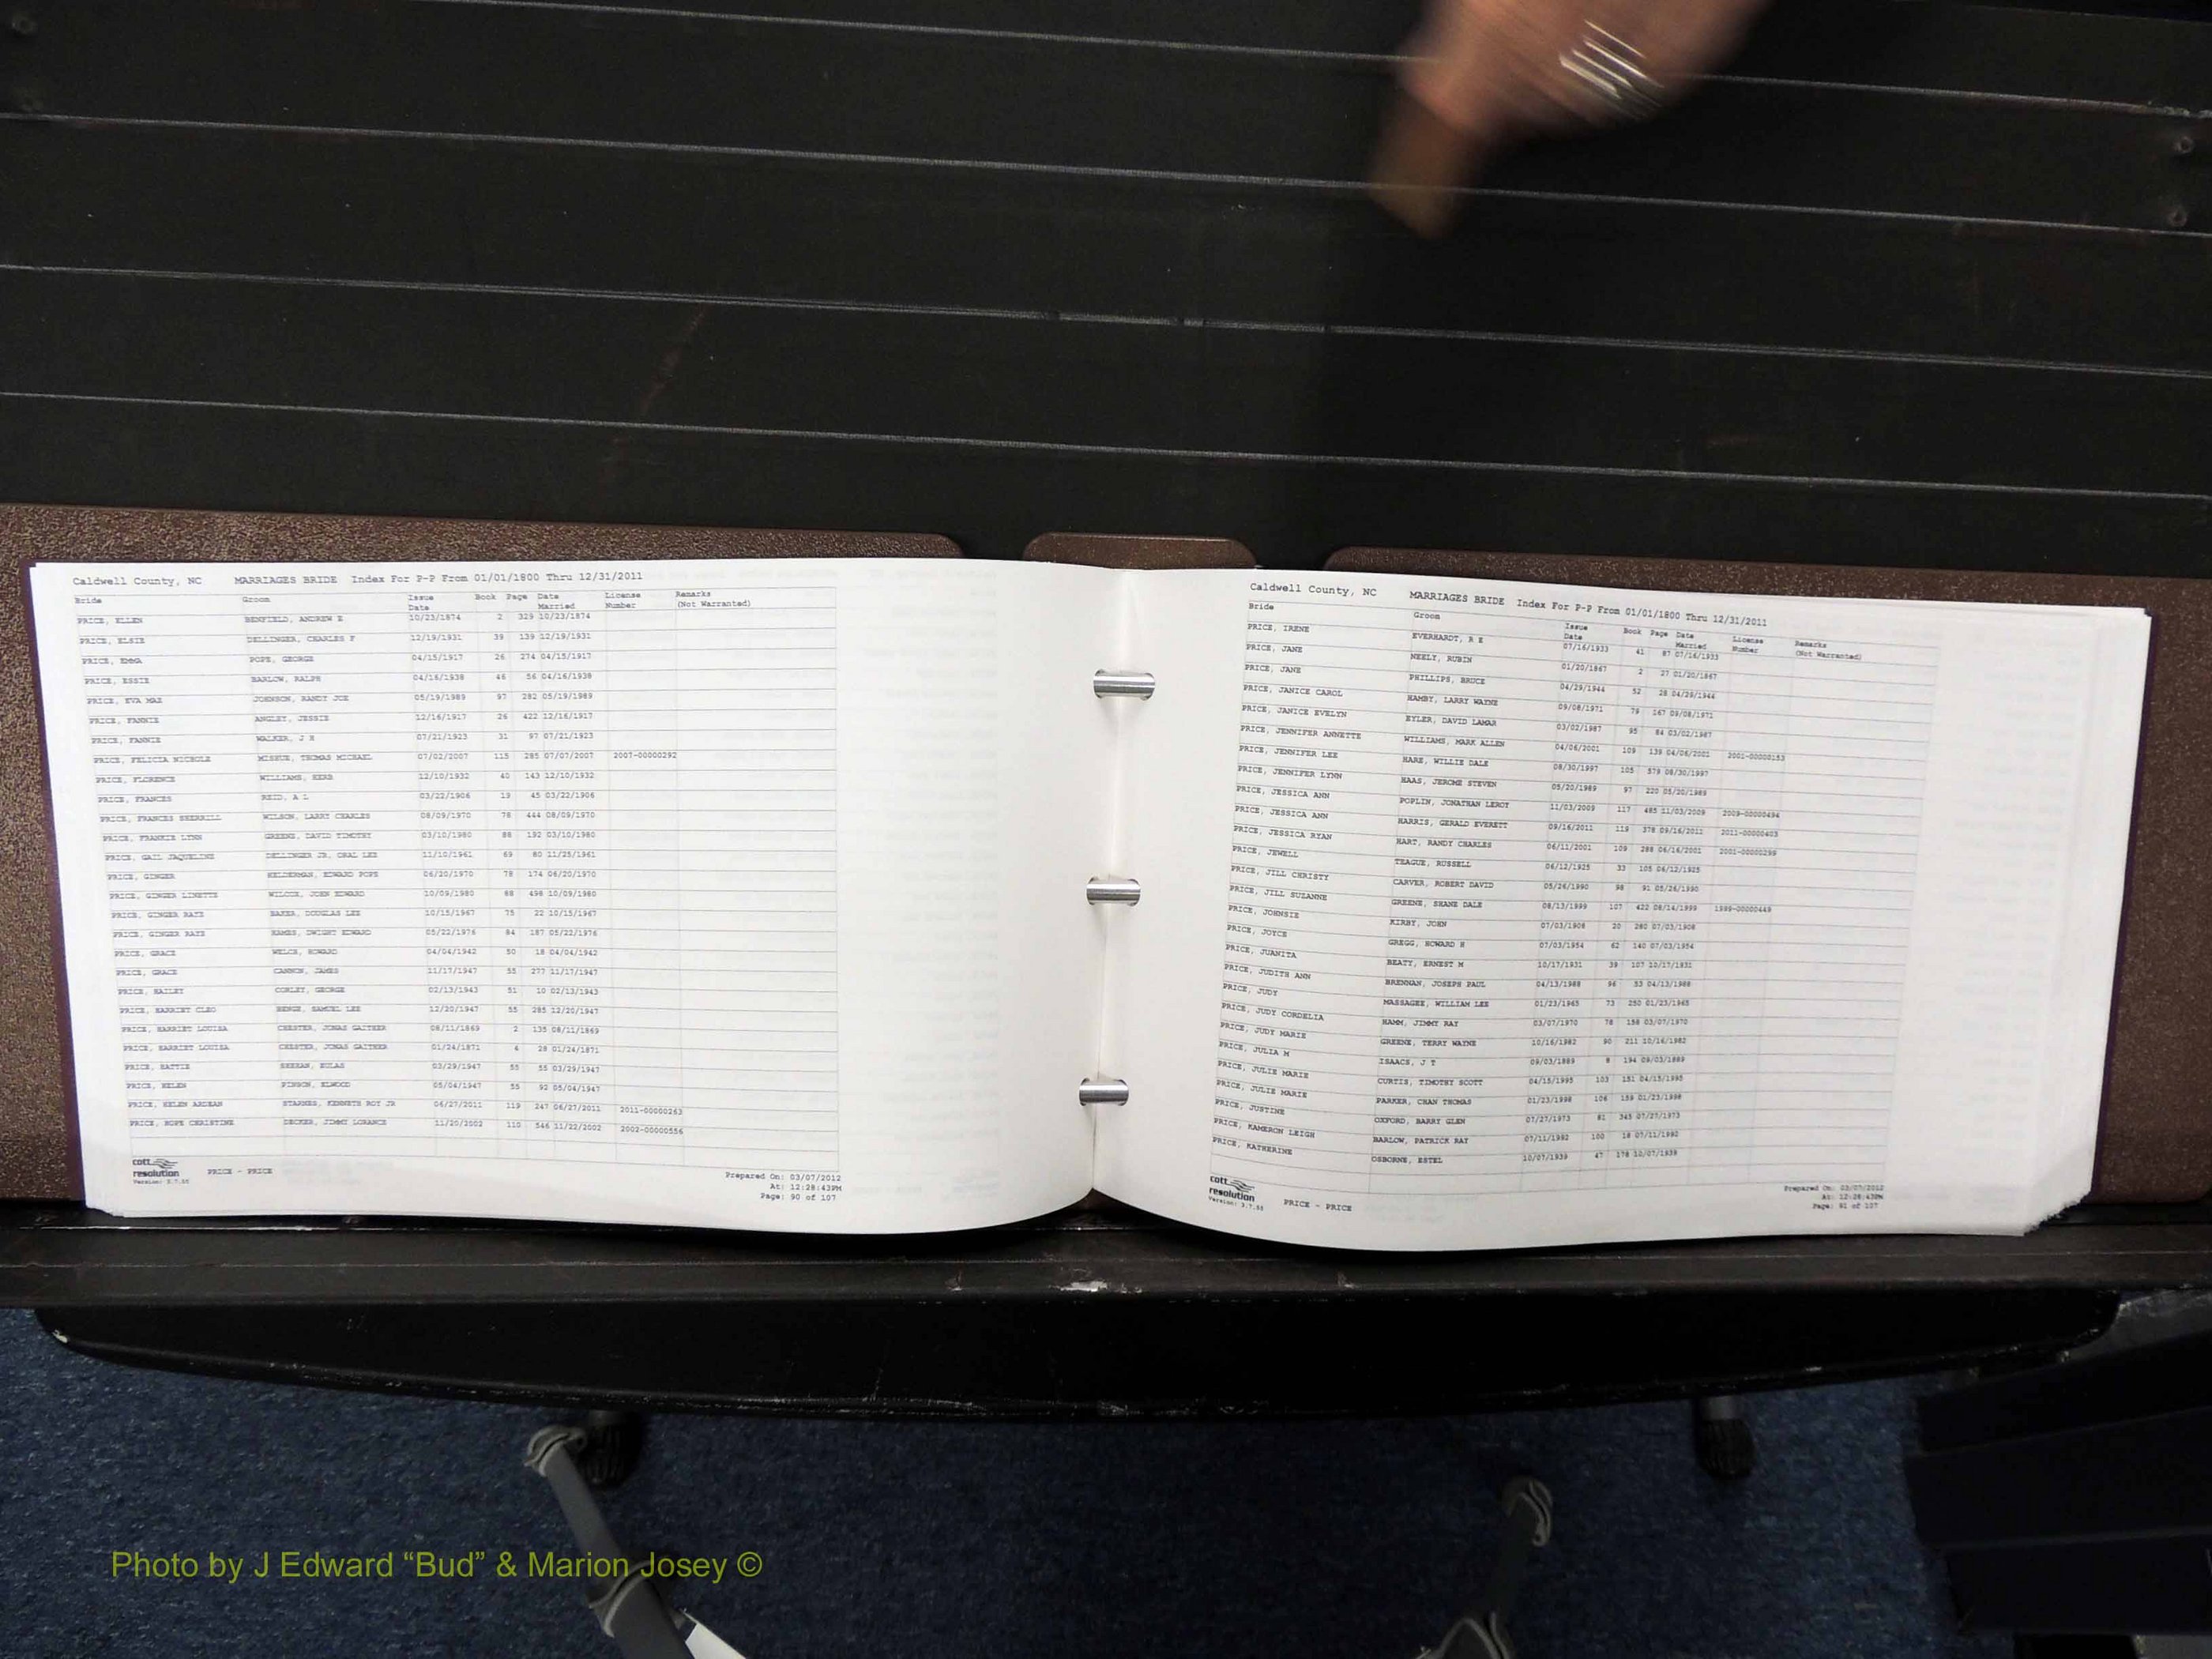 Caldwell County, NC MARRIAGES BRIDE Index For P-P From 01/01/1800 Thru 12/31/2011
Bride Groom Issue Date Book Page Date Married License Number Remarks (Not Warranted)
PRICE, ELLEN BENFIELD, ANDREW E 10/23/1874 2 329 10/23/1874
PRICE, ELSIE DELLINGER, CHARLES F 12/19/1931 39 139 12/19/1931
PRICE, EMMA POPE, GEORGE 04/15/1917 26 274 04/15/1917
PRICE, ESSIE BARLOW, RALPH 04/16/1938 46 56 04/16/1938
PRICE, EVA MAE JOHNSON, RANDY JOE 05/19/1989 97 282 05/19/1989
PRICE, FANNIE ANGLEY, JESSIE 12/16/1917 26 422 12/16/1917
PRICE, FANNIE WALKER, J H 07/21/1923 31 97 07/21/1923
PRICE, FELICIA NICHOLE THOMAS MICHAEL 07/02/2007 115 285 07/07/2007 2007-00000292
PRICE, FLORENCE WILLIAMS, HERB 12/10/1932 40 143 12/10/1932
PRICE, FRANCES REID, A L 03/22/1906 19 45 03/22/1906
PRICE, FRANCES SHERRILL WILSON, LARRY CHARLES 08/09/1970 78 444 08/09/1970
PRICE, FRANKIE LYNN GREENE, DAVID TIMOTHY 03/10/1980 88 192 03/10/1980
PRICE, GAIL JAQUELINE DELLINGER JR, ORAL LEE 11/10/1961 69 80 11/25/1961
PRICE, GINGER HELDERMAN, EDWARD POPE 06/20/1970 78 174 06/20/1970
PRICE, GINGER LINETTE WILCOX, JOHN EDWARD 10/09/1980 88 498 10/09/1980
PRICE, GINGER RAYE BAKER, DOUGLAS LEE 10/15/1967 75 22 10/15/1967
PRICE, GINGER RAYE DWIGHT EDWARD 05/22/1976 84 187 05/22/1976
PRICE, GRACE WELCH, HOWARD 04/04/1942 50 18 04/04/1942
PRICE, GRACE CANNON, JAMES 11/17/1947 55 277 11/17/1947
PRICE, HAILEY CORLEY, GEORGE 02/13/1943 51 10 02/13/1943
PRICE, HARRIET CLEO SAMUEL LEE 12/20/1947 55 285 12/20/1947
PRICE, HARRIET LOUIZA CHESTER, JONAS GAITHER 08/11/1869 2 135 08/11/1869
PRICE, HARRIET LOUIZA CHESTER, JONAS GAITHER 01/24/1871 4 28 01/24/1871
PRICE, HATTIE 03/29/1947 55 55 03/29/1947
PRICE, HELEN PINSON, ELWOOD 05/04/1947 55 92 05/04/1947
PRICE, HELEN ARDEAN STARNES, KENNETH ROY JR 06/27/2011 119 247 06/27/2011 2011-00000263
PRICE, HOPE CHRISTINE DECKER, JIMMY LORANCE 11/20/2002 110 546 11/22/2002 2002-00000556
cott
resolution
Version: 3.7.55
PRICE - PRICE
Prepared On: 03/07/2012
At: 12:28:43PM
Page: 90 of 107
Caldwell County, NC MARRIAGES BRIDE Index For P-P From 01/01/1800 Thru 12/31/2011
Bride Groom Issue Date Book Page Date Married License Number Remarks (Not Warranted)
PRICE, IRENE EVERHARDT, R E 07/16/1933 41 87 07/16/1933
PRICE, JANE NEELY, RUBIN 01/20/1867 2 27 01/20/1867
PRICE, JANE PHILLIPS, BRUCE 04/29/1944 52 28 04/29/1944
PRICE, JANICE CAROL HAMBY, LARRY WAYNE 09/08/1971 79 167 09/08/1971
PRICE, JANICE EVELYN EYLER, DAVID LAMAR 03/02/1987 95 84 03/02/1987
PRICE, JENNIFER ANNETTE WILLIAMS, MARK ALLEN 04/06/2001 109 139 04/06/2001 2001-00000153
PRICE, JENNIFER LEE HARE, WILLIE DALE 08/30/1997 105 579 08/30/1997
PRICE, JENNIFER LYNN HAAS, JEROME STEVEN 05/20/1989 97 220 05/20/1989
PRICE, JESSICA ANN POPLIN, JONATHAN LEROY 11/03/2009 117 485 11/03/2009 2009-00000494
PRICE, JESSICA ANN HARRIS, GERALD EVERETT 09/16/2011 119 378 09/16/2011 2011-00000403
PRICE, JESSICA RYAN HART, RANDY CHARLES 06/11/2001 109 288 06/16/2001 2001-00000299
PRICE, JEWELL TEAGUE, RUSSELL 06/12/1925 33 105 06/12/1925
PRICE, JILL CHRISTY CARVER, ROBERT DAVID 05/26/1990 98 91 05/26/1990
PRICE, JILL SUZANNE GREENE, SHANE DALE 08/13/1999 107 422 08/14/1999 1999-00000449
PRICE, JOHNSIE KIRBY, JOHN 07/03/1908 20 280 07/03/1908
PRICE, JOYCE GREGG, HOWARD H 07/03/1954 62 140 07/03/1954
PRICE, JUANITA BEATY, ERNEST M 10/17/1931 39 107 10/17/1931
PRICE, JUDITH ANN BRENNAN, JOSEPH PAUL 04/13/1988 96 33 04/13/1988
PRICE, JUDY MASSAGEE, WILLIAM LEE 01/23/1965 73 250 01/23/1965
PRICE, JUDY CORDELIA HAMM, JIMMY RAY 03/07/1970 78 158 03/07/1970
PRICE, JUDY MARIE GREENE, TERRY WAYNE 10/16/1982 90 211 10/16/1982
PRICE, JULIA M ISAACS, J T 09/03/1889 8 194 09/03/1889
PRICE, JULIE MARIE CURTIS, TIMOTHY SCOTT 04/15/1995 103 151 04/15/1995
PRICE, JULIE MARIE PARKER, CHAN THOMAS 01/23/1998 106 159 01/23/1998
PRICE, JUSTINE OXFORD, BARRY GLEN 07/27/1973 81 345 07/27/1973
PRICE, KAMERON LEIGH BARLOW, PATRICK RAY 07/11/1992 100 18 07/11/1992
PRICE, KATHERINE OSBORNE, ESTEL 10/07/1939 47 178 10/07/1939
cott
resolution
Version: 3.7.55
PRICE - PRICE
Prepared On: 03/07/2012
At: 12:28:43PM
Page: 91 of 107
Photo by J Edward “Bud” & Marion Josey ©